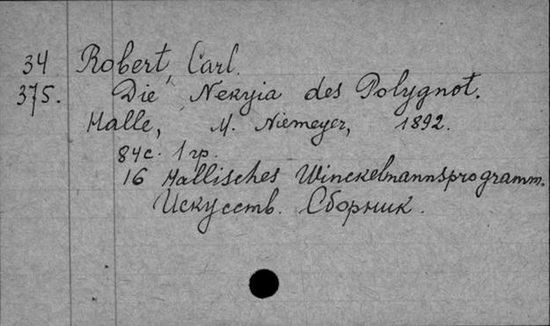 34 Robert, Carl.
375. Die Nekyia des Polygnot.
Halle, M. Niemeyer, 1892.
84с. 1 гр.
16 Hallisches Winckelmannsprogramm.
Искусств. Сборник.